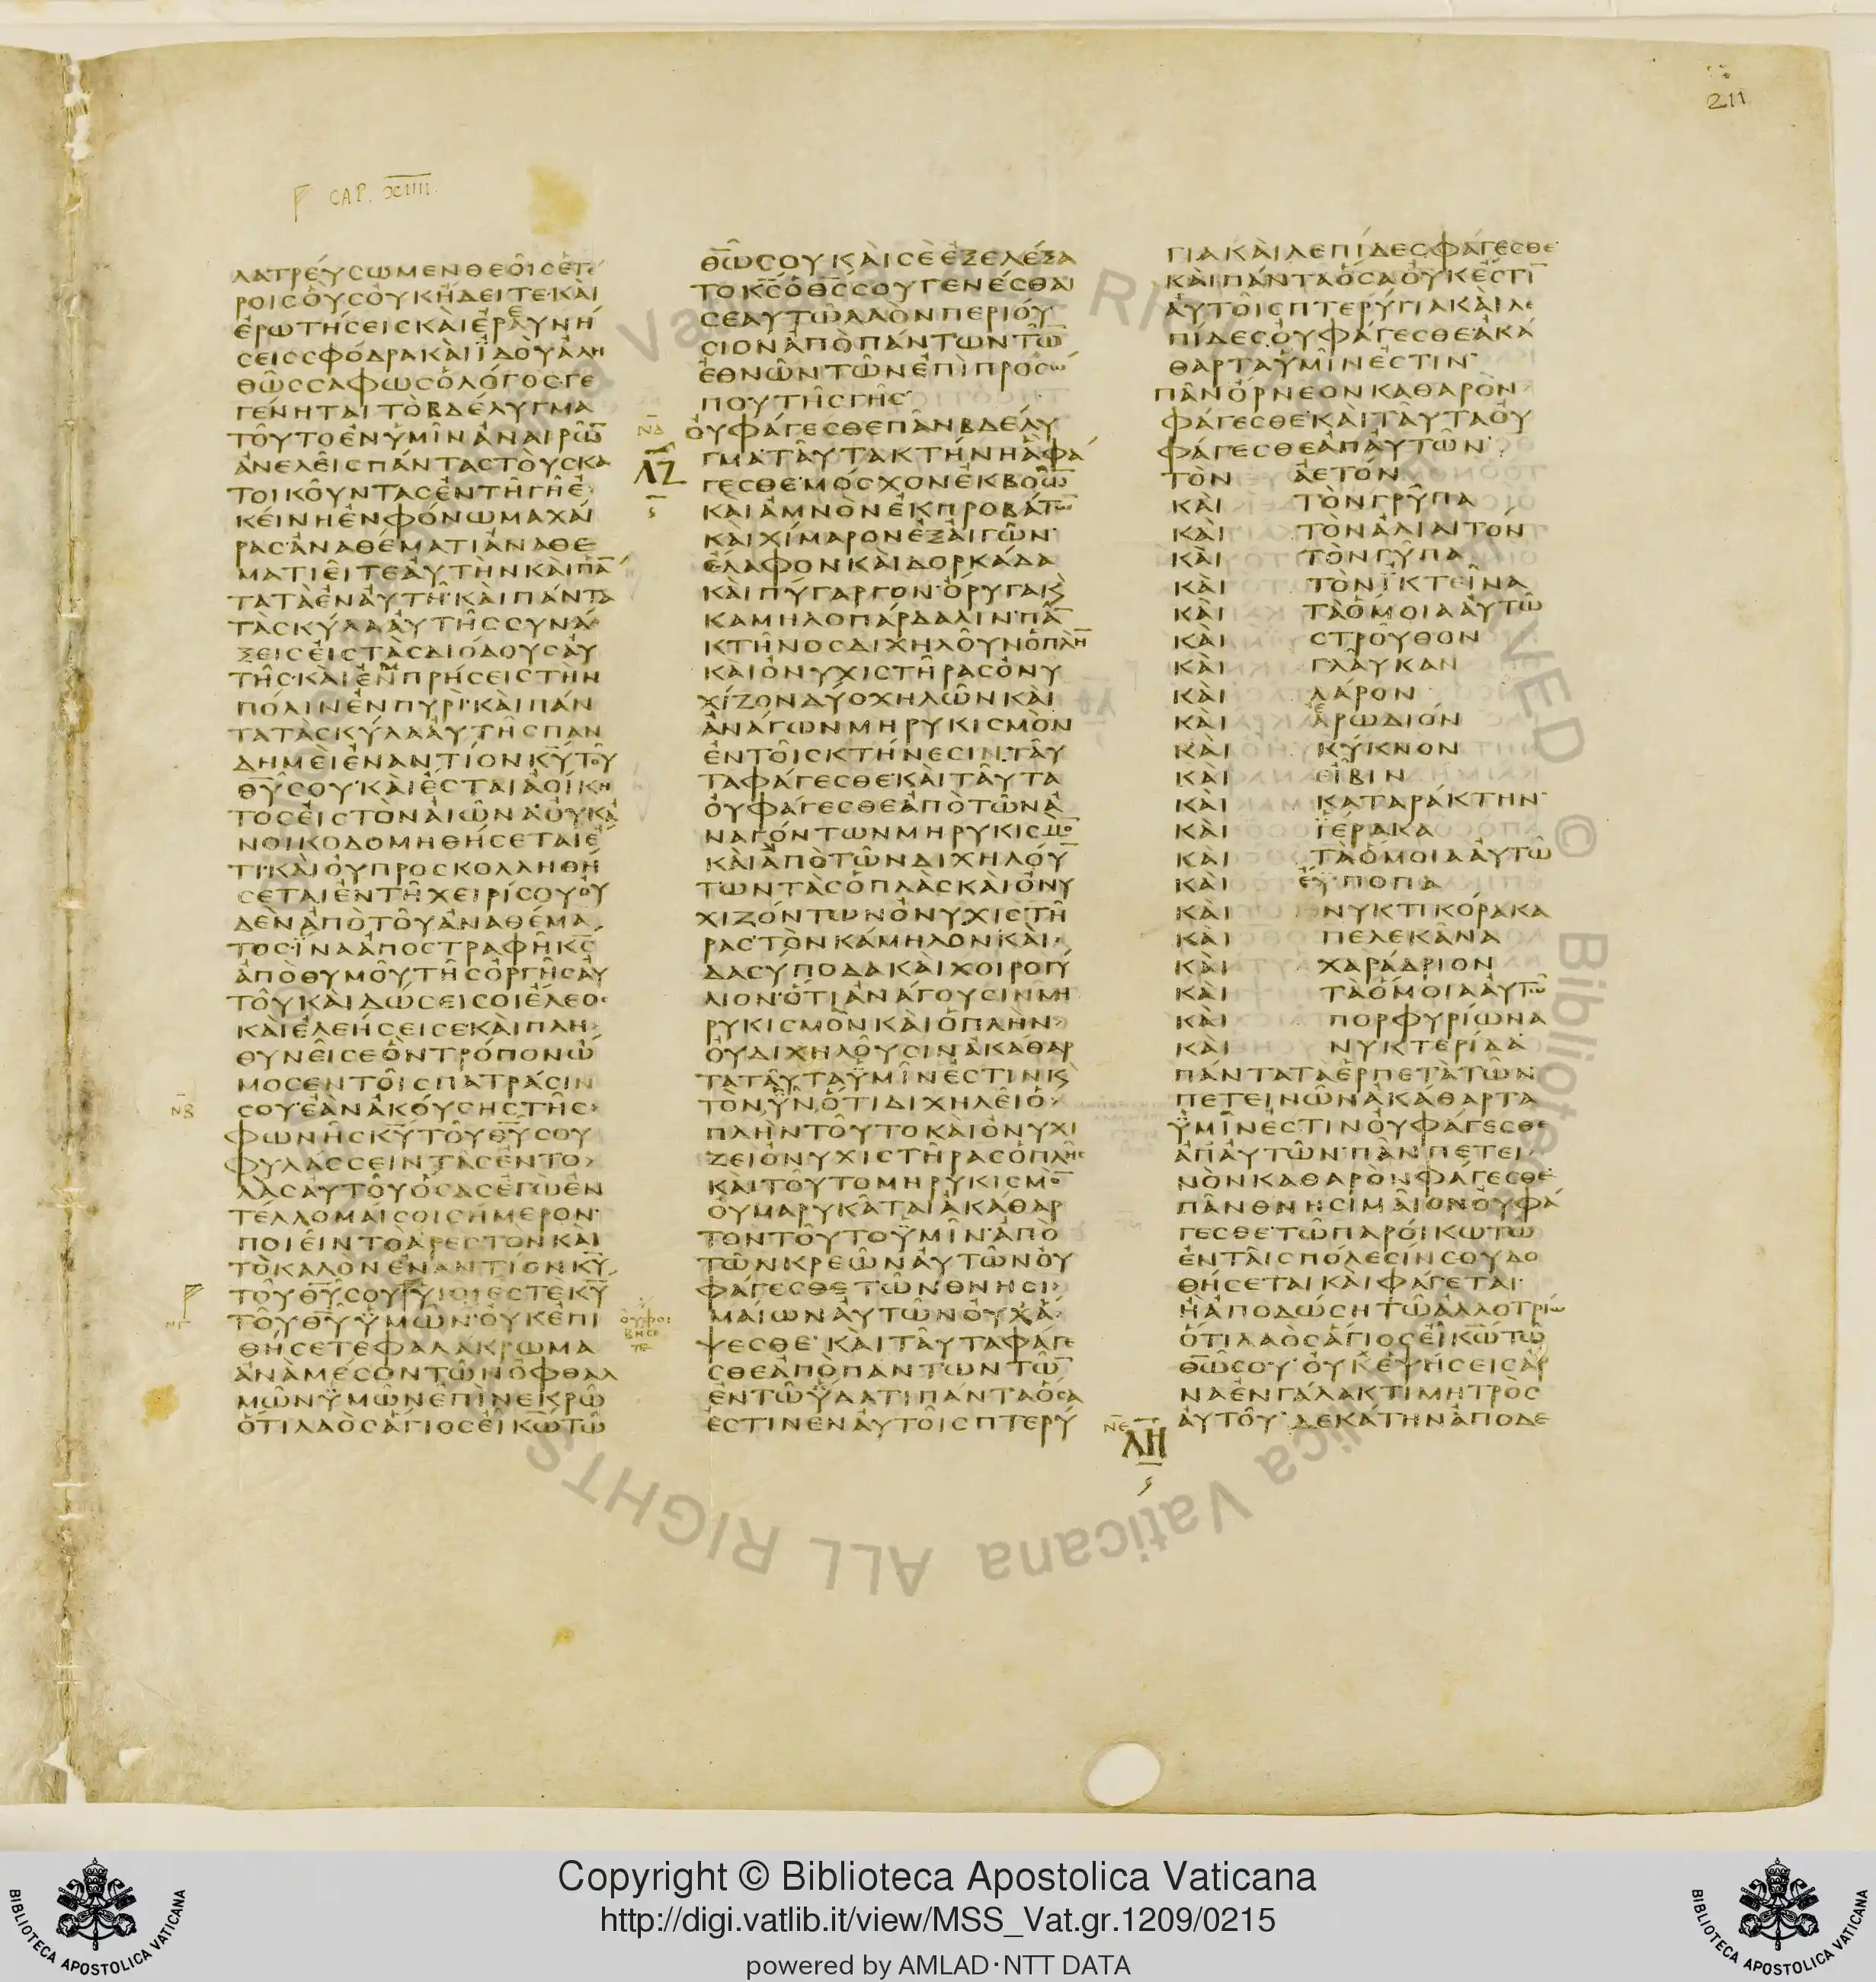 211
CAP. XIIII.
ΛΑΤΡΕΎϹΩΜΕΝΘΕΟῖϹἙΤΕ
ΡΟΙϹΟὛϹΟΥΚΉΔΕΙΤΕ·ΚΑῚ
ἘΡΩΤΉϹΕΙϹΚΑῚἘΡΑΥΝΉ
ϹΕΙϹϹΦΌΔΡΑΚΑῚΪΔΟῪἈΛΗ
ΘῶϹϹΑΦΩϹὉΛΌΓΟϹ·ΓΕ
ΓΈΝΗΤΑΙΤῸΒΔΈΛΥΓΜΑ
ΤΟῦΤΟἘΝΫΜῖΝἈΝΑΙΡῶ̅
ἈΝΕΛΕῖϹΠΆΝΤΑϹΤΟῪϹΚΑ
ΤΟΙΚΟῦΝΤΑϹἘΝΤῆΓῆἘ
ΚΕΊΝΗἘΝΦΌΝΩΜΑΧΑΊ
ΡΑϹ·ἈΝΑΘΈΜΑΤΙἈΝΑΘΕ
ΜΑΤΙΕῖΤΕΑΥΤΗΝΚΑΙΠᾶ̅
ΤΑΤᾺἘΝΑΥΤῆ·ΚΑῚΠΆΝΤΑ
ΤᾺϹΚῦΛΑΑΥΤῆϹϹΥΝΆ
ΞΕΙϹΕἸϹΤᾺϹΔΙΌΔΟΥϹΑΥ
ΤῆϹ·ΚΑῚἘΝΠΡΉϹΕΙϹΤῊΝ
ΠΌΛΙΝἘΝΠΥΡῚ·ΚΑῚΠΆΝ
ΤΑΤᾺϹΚῦΛΑΑΥΤῆϹΠΑΝ
ΔΗΜΕῚἘΝΑΝΤΊΟΝΚ̅Υ̅ΤΟῦ
Θ̅Υ̅ϹΟΥ·ΚΑῚἜϹΤΑΙἈΟΊΚΗ
ΤΟϹΕἸϹΤῸΝΑἸῶΝΑ·ΟΥΚΑ
ΝΟΙΚΟΔΟΜΗΘΉϹΕΤΑΙἘ
ΤΙ·ΚΑῚΟΥΠΡΟϹΚΟΛΛΗΘΉ
ϹΕΤΑΙἘΝΤῆΧΕΙΡΊϹΟΥΟΥ
ΔῈΝἈΠῸΤΟῦἈΝΑΘΈΜΑ
ΤΟϹ·ἽΝΑἈΠΟϹΤΡΑΦῆΚ̅Ϲ̅
ἈΠῸΘΥΜΟῦΤῆϹὈΡΓῆϹΑΥ
ΤΟῦΚΑῚΔΏϹΕΙϹΟΙἜΛΕΟϹ
ΚΑῚἘΛΕΉϹΕΙϹΕΚΑῚΠΛΗ
ΘΥΝΕῖϹΕῸΝΤΡΌΠΟΝὨ
ΜΟϹΕΝΤΟῖϹΠΑΤΡΆϹΙΝ
ΝΒ
ϹΟΥ·ἘᾺΝἈΚΟΎϹΗϹΤῆϹ
ΦΩΝῆϹΚ̅Υ̅ΤΟῦΘ̅Υ̅ϹΟΥ
ΦΥΛΆϹϹΕΙΝΤᾺϹἘΝΤΟ
ΛᾺϹΑΥΤΟῦὍϹΑϹἘΓῺἘΝ
ΤΈΛΛΟΜΑΊϹΟΙϹΉΜΕΡΟΝ·
ΠΟΙΕῖΝΤῸἈΡΕϹΤῸΝΚΑῚ
ΤῸΚΑΛῸΝἘΝΑΝΤΊΟΝΚ̅Υ̅
ΤΟῦΘ̅Υ̅ϹΟΥΥἹΟΊἘϹΤῈΚ̅Υ̅
ΝΓ
ΤΟῦΘ̅Υ̅ΫΜῶΝ·ΟΥΚἘΠΙ
ΘΉϹΕΤΕΦΑΛΆΚΡΩΜΑ
ἈΝᾺΜΈϹΟΝΤῶΝὈΦΘΑΛ
ΜῶΝΫΜῶΝἘΠῚΝΕΚΡῶ
ὍΤΙΛΑῸϹἍΓΙΟϹΕἾΚ̅Ω̅Τῶ
Θ̅Ω̅ϹΟΥΚΑῚϹῈἘΞΕΛΈΞΑ
ΤΟΚ̅Ϲ̅ὉΘ̅Ϲ̅ϹΟΥΓΕΝΈϹΘΑΙ
ϹΕΑΥΤῶΛΑῸΝΠΕΡΙΟΎ
ϹΙΟΝἈΠῸΠΆΝΤΩΝΤῶ̅
ἘΘΝῶΝΤῶΝἘΠῚΠΡΟϹΩ
ΠΟΥΤῆϹΓῆϹ·
ΝΔ
ΟΥΦΆΓΕϹΘΕΠᾶΝΒΔΈΛΥ
ΛΖ
ΓΜΑ·ΤΑῦΤΑΚΤΉΝΗἋΦΆ
ΓΕϹΘΕ·ΜΌϹΧΟΝἘΚΒΟῶ̅
ΚΑῚἈΜΝῸΝἘΚΠΡΟΒΆΤΩ̅
ΚΑῚΧΊΜΑΡΟΝἘΞΑἸΓῶΝ·
ἜΛΑΦΟΝΚΑῚΔΟΡΚΆΔΑ
ΚΑῚΠΎΓΑΡΓΟΝ·ὌΡΥΓΑΚ
ΚΑΜΗΛΟΠΆΡΔΑΛΙΝ·ΠΑ̅
ΚΤῆΝΟϹΔΙΧΗΛΟῦΝὉΠΛΗ̅
ΚΑῚὈΝΥΧΙϹΤῆΡΑϹὈΝΥ
ΧΊΖΟΝΔΎΟΧΗΛῶΝΚΑῚ
ἈΝΆΓΩΝΜΗΡΥΚΙϹΜῸΝ
ἘΝΤΟῖϹΚΤΉΝΕϹΙΝ·ΤΑῦ
ΤΑΦΆΓΕϹΘΕ·ΚΑῚΤΑῦΤΑ
ΟΥΦΆΓΕϹΘΕἈΠῸΤῶΝἈ
ΝΑΓΌΝΤΩΝΜΗΡΥΚΙϹΜΟ̅
ΚΑῚἈΠῸΤῶΝΔΙΧΗΛΟΎ̅
ΤΩΝΤᾺϹὉΠΛᾺϹΚΑῚὈΝΥ
ΧΙΖΌΝΤΩΝὈΝΥΧΙϹΤῆ
ΡΑϹ·ΤῸΝΚΆΜΗΛΟΝ·ΚΑῚ
ΔΑϹΎΠΟΔΑΚΑῚΧΟΙΡΟΓΎ
ΛΙΟΝ·ὍΤΙἈΝΆΓΟΥϹΙΝΜΗ
ΡΥΚΙϹΜῸΝΚΑῚὉΠΛῊΝ
ΟΥΔΙΧΗΛΟῦϹΙΝἈΚΆΘΑΡ
ΤΑΤΑῦΤΑΫΜῖΝἘϹΤΙΝΚ
ΤῸΝΫ͂ΝὍΤΙΔΙΧΗΛΕῖὉ
ΠΛῊΝΤΟῦΤΟΚΑῚὈΝΥΧΙ
ΖΕΙὈΝΥΧΙϹΤῆΡΑϹὉΠΛῆϹ
ΚΑῚΤΟῦΤΟΜΗΡΥΚΙϹΜΟ̅
ΟΥΜΑΡΥΚᾶΤΑΙἈΚΆΘΑΡ
ΤΟΝΤΟῦΤΟΫΜῖΝ·ἈΠῸ
ΤῶΝΚΡΕῶΝΑΥΤῶΝΟΥ
ΦΆΓΕϹΘΕΤῶΝΘΝΗϹΙ
ΟΥΦΟΙ
ΒΗϹΕ
ΤΕ
ΜΑΙΩΝΑΥΤῶΝΟΥΧᾺ
ΨΕϹΘΕ·ΚΑῚΤΑῦΤΑΦΆΓΕ
ϹΘΕἈΠῸΠΆΝΤΩΝΤῶ̅
ἘΝΤῶΫΔΑΤΙΠΆΝΤΑὍϹΑ
ἘϹΤΙΝΕΝΑΥΤΟῖϹΠΤΕΡΎ
ΓΙΑΚΑῚΛΕΠΊΔΕϹΦΆΓΕϹΘΕ·
ΚΑῚΠΆΝΤΑὍϹΑΟΥΚἜϹΤΙ̅
ΑΥΤΟῖϹΠΤΕΡΎΓΙΑΚΑῚΛΕ
ΠΊΔΕϹΟΥΦΆΓΕϹΘΕ·ἈΚΆ
ΘΑΡΤΑΫΜῖΝἘϹΤΙΝ·
ΠᾶΝὌΡΝΕΟΝΚΑΘΑΡῸΝ
ΦΆΓΕϹΘΕ·ΚΑῚΤΑῦΤΑΟΥ
ΦΆΓΕϹΘΕἈΠΑΥΤῶΝ·
ΤῸΝ ἈΕΤΌΝ
ΚΑῚ ΤῸΝΓΡῦΠΑ
ΚΑῚ ΤῸΝἉΛΙΑΙΤΟΝ
ΚΑῚ ΤῸΝΓῦΠΑ
ΚΑῚ ΤῸΝΪΚΤΕῖΝΑ
ΚΑῚ ΤᾺὍΜΟΙΑΑΥΤῶ
ΚΑῚ ϹΤΡΟῦΘΟΝ
ΚΑῚ ΓΛΑῦΚΑΝ
ΚΑῚ ΛΆΡΟΝ
ΚΑῚ ἈΡΩΔΙΌΝ
ΚΑῚ ΚΎΚΝΟΝ
ΚΑῚ ΕἾΒΙΝ
ΚΑῚ ΚΑΤΑΡΆΚΤΗΝ·
ΚΑῚ ΪΈΡΑΚΑ
ΚΑῚ ΤᾺὍΜΟΙΑΑΥΤῶ
ΚΑῚ ἜΠΟΠΑ
ΚΑῚ ΝΥΚΤΙΚΌΡΑΚΑ
ΚΑῚ ΠΕΛΕΚᾶΝΑ
ΚΑῚ ΧΑΡΆΔΡΙΟΝ
ΚΑῚ ΤᾺὍΜΟΙΑΑΥΤῶ
ΚΑῚ ΠΟΡΦΥΡΊΩΝΑ
ΚΑῚ ΝΥΚΤΕΡΊΔΑ
ΠΆΝΤΑΤᾺἙΡΠΕΤᾺΤῶΝ
ΠΕΤΕΙΝῶΝἈΚΆΘΑΡΤΑ
ΫΜῖΝἘϹΤΙΝΟΥΦΆΓΕϹΘΕ
ἈΠΑΥΤῶΝ·ΠᾶΝΠΕΤΕΙ
ΝῸΝΚΑΘΑΡῸΝΦΆΓΕϹΘΕ·
ΠᾶΝΘΝΗϹΙΜΑῖΟΝΟΥΦΆ
ΓΕϹΘΕ·ΤῶΠΑΡΟΊΚΩΤῶ
ἘΝΤΑῖϹΠΌΛΕϹΊΝϹΟΥΔΟ
ΘΉϹΕΤΑΙΚΑῚΦΆΓΕΤΑΙ·
ῊἈΠΟΔΏϹΗΤῶἈΛΛΟΤΡΊΩ
ὍΤΙΛΑῸϹἍΓΙΟϹΕἾΚ̅Ω̅Τῶ
Θ̅Ω̅ϹΟΥ·ΟΥΧἘΨΉϹΕΙϹἌΡ
ΝΑἘΝΓΆΛΑΚΤΙΜΗΤΡῸϹ
ΝΕ
ΛΗ
ΑΥΤΟῦ·ΔΕΚΆΤΗΝἈΠΟΔΕ
Copyright © Biblioteca Apostolica Vaticana
http://digi.vatlib.it/view/MSS_Vat.gr.1209/0215
powered by AMLAD·NTT DATA
BIBLIOTECA APOSTOLICA VATICANA
BIBLIOTECA APOSTOLICA VATICANA